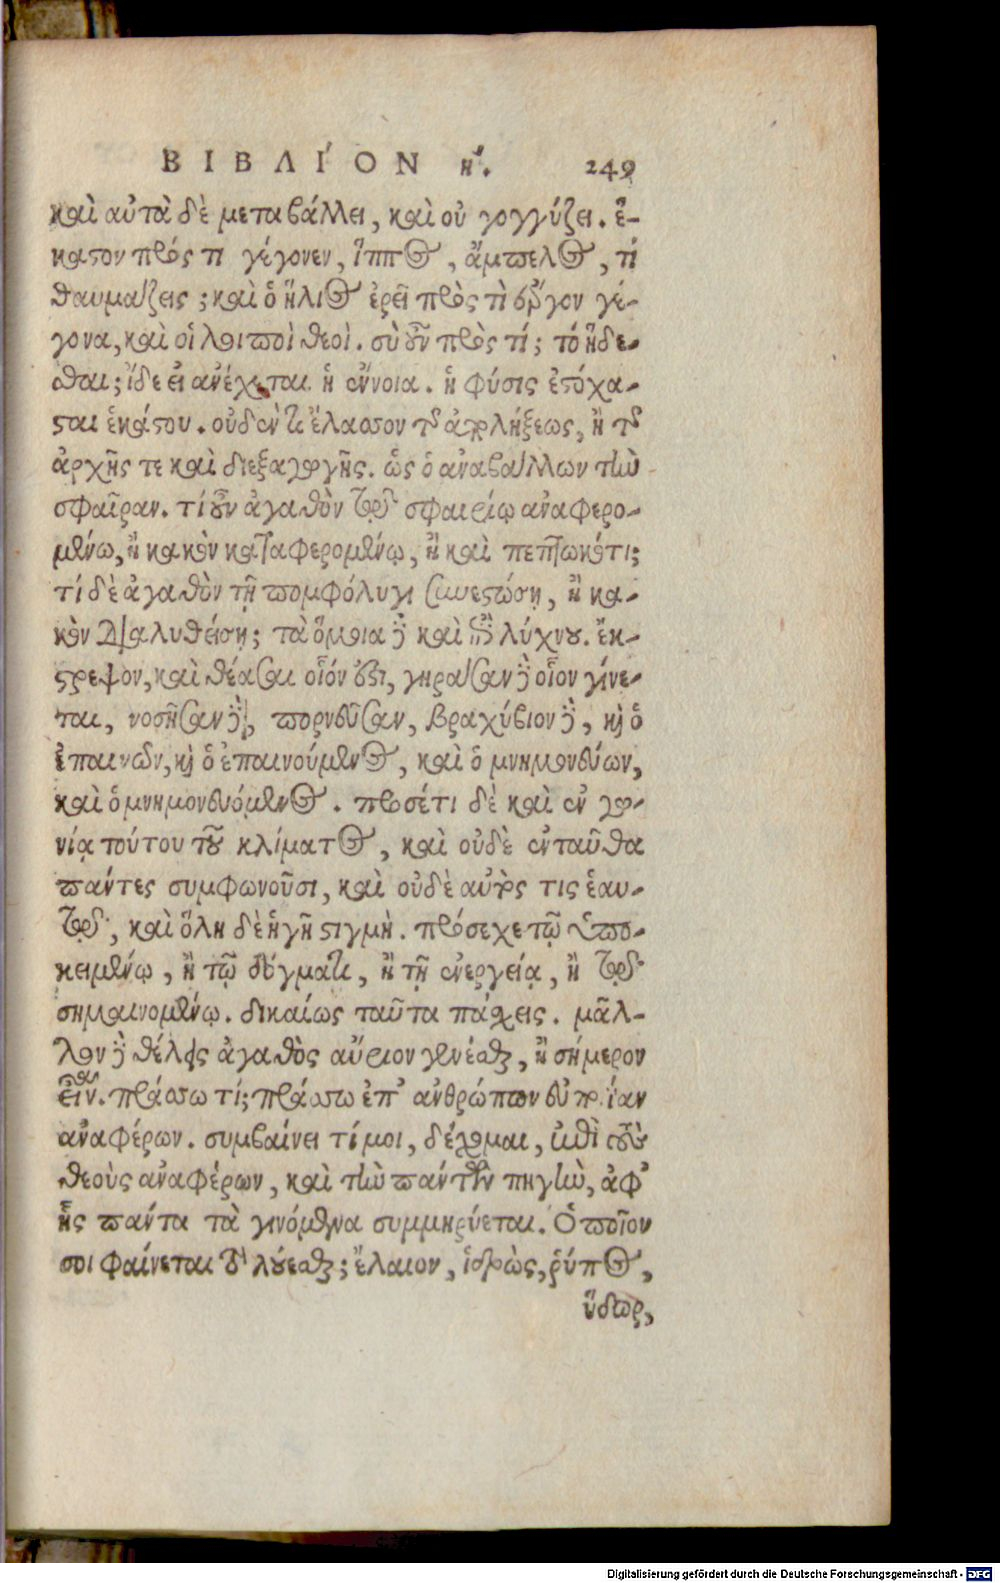 ΒΙΒΛΙ´ΟΝ η´. 249
καὶ αὐτὰ δὲ μεταβάλλει, καὶ οὐ γογγύζει. ἕ-
καστον πρός τι γέγονεν, ἵππος, ἄμπελος, τί
θαυμάζεις; καὶ ὁ ἥλιος ἐρεῖ πρὸς τὶ ἔργον γέ-
γονα, καὶ οἱ λοιποὶ θεοί. σὺ οὖν πρὸς τί; τό ἥδε-
σθαι; ἴδε εἰ ἀνέχεται ἡ ἔννοια. ἡ φύσις ἐστόχα-
σται ἑκάστου. οὐδέν τι ἔλασσον τῆς ἀπολήξεως, ἢ τῆς
ἀρχῆς τε καὶ διεξαγωγῆς. ὡς ὁ ἀναβάλλων τὴν
σφαῖραν. τί οὖν ἀγαθὸν τῷ σφαιρίῳ ἀναφερο-
μένω, ἢ κακὸν καταφερομένῳ, ἢ καὶ πεπτωκότι;
τί δὲ ἀγαθὸν τῇ πομφόλυγι συνεστώσῃ, ἢ κα-
κὸν διαλυθείσῃ; τὰ ὅμοια δὲ καὶ ἐπὶ λύχνου. ἔκ-
στρεψον, καὶ θέασαι οἷόν ἐστι, γηράσαν δὲ οἷον γίνε-
ται, νοσῆσαν δὲ, πορνεῦσαν, βραχύβιον δὲ, καὶ ὁ
ἐπαινῶν, καὶ ὁ ἐπαινούμενος, καὶ ὁ μνημονεύων,
καὶ ὁ μνημονευόμενος. προσέτι δὲ καὶ ἐν γω-
νίᾳ τούτου τοῦ κλίματος, καὶ οὐδὲ ἐνταῦθα
πάντες συμφωνοῦσι, καὶ οὐδὲ αὐτός τις ἑαυ-
τῷ, καὶ ὅλη δὲ ἡ γῆ στιγμή. πρόσεχε τῷ ὑπο-
κειμένῳ, ἢ τῷ δόγματι, ἢ τῇ ἐνεργείᾳ, ἢ τῷ
σημαινομένῳ. δικαίως ταῦτα πάσχεις. μᾶλ-
λον δὲ θέλεις ἀγαθὸς αὔριον γενέσθαι, ἢ σήμερον
εἶναι. πράσσω τί; πράσσω ἐπ' ἀνθρώπων εὐποιΐαν
ἀναφέρων. συμβαίνει τί μοι, δέχομαι, ἐπὶ τοὺς
θεοὺς ἀναφέρων, καὶ τὴν πάντων πηγὴν, ἀφ'
ἧς πάντα τὰ γινόμενα συμμηρύεται. Ὁποῖον
σοι φαίνεται τὸ λούεσθαι; ἔλαιον, ἱδρὼς, ῥύπος,
ὕδωρ,
Digitalisierung gefördert durch die Deutsche Forschungsgemeinschaft - DFG